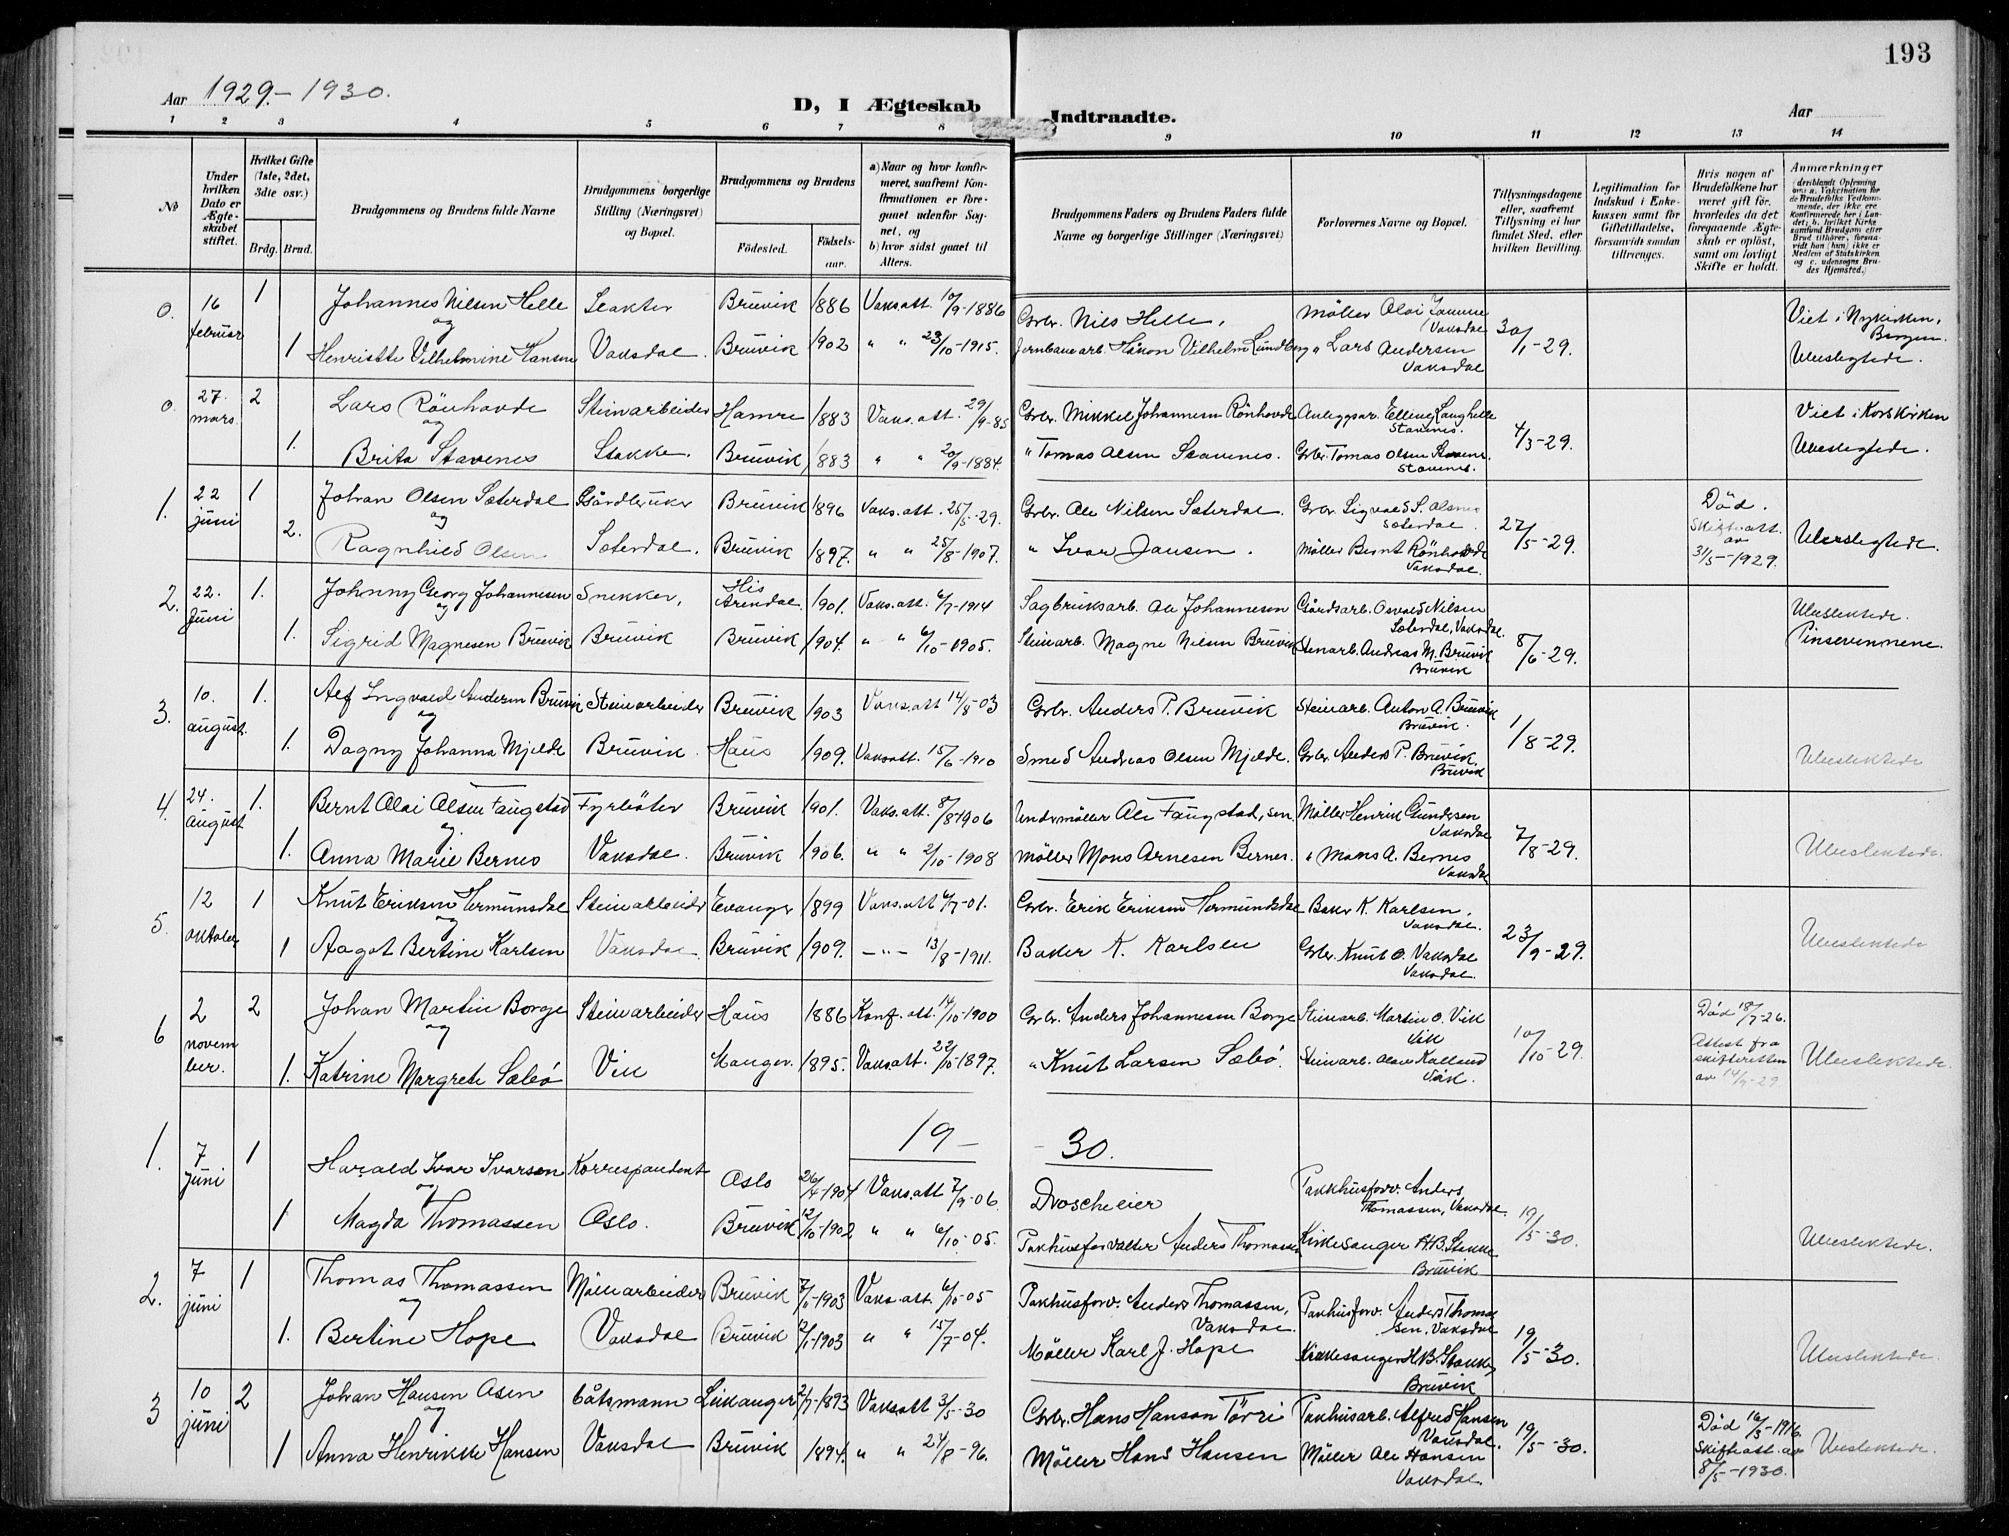 193
Aar 1929.-1930.
D, I Ægteskab Indtraadte.
Aar
1 2 3 4 5 6 7 8 9 10 11 12 13 14
No
Under hvilken Dato er Ægteskabet stiftet.
Hvilket Gifte (1ste, 2det, 3die osv.)
Brdg. Brud.
Brudgommens og Brudens fulde Navne
Brudgommens borgerlige Stilling (Næringsvei) og Bopæl.
Brudgommens og Brudens
Fødested. Fødselsaar.
a) Naar og hvor konfirmeret, saafremt Konfirmationen er foregaaet udenfor Sognet, og
b) hvor sidst gaaet til Alters.
Brudgommens Faders og Brudens Faders fulde Navne og borgerlige Stillinger (Næringsvei)
Forlovernes Navne og Bopæl.
Tillysningsdagene eller, saafremt Tillysning ei har fundet Sted, efter hvilken Bevilling.
Legitimation for Indskud i Enkekassen samt for Giftetilladelse, forsaavidt saadan tiltrænges.
Hvis nogen af Brudefolkene har været gift før, hvorledes da det foregaaende Ægteskab er opløst, samt om lovligt Skifte er holdt.
Anmærkninger (deriblandt Oplysning om: a. Vakcination for de Brudefolks Vedkommende, der ikke ere konfirmerede her i Landet, b. hvilket Kirkesamfund Brudgom eller Brud tilhører, forsaavidt han (hun) ikke er Medlem af Statskirken og c. udensogns Brudes Hjemsted.)
0. 16 februar 1 Johannes Nilsen Helle Bruvik 1886 Vaks.att. 10/9-1886 Grbr. Nils Helle, Møller Olai 30/1-29. Viet i Nykirken, Bergen.
og Vaksdal
1 Henriette Vilhelmine Hansen Vaksdal. Bruvik 1902 " " 23/10-1915. Jernbanearb. Håkon Vilhelm Lundberg " Lars Andersen Vaksdal Ubeslegtede.
0. 27. mars. 2 Lars Rønhovde Steinarbeider Hamre 1883 Vaks.att. 29/9-85 Grbr. Mikkel Johannesen Rønhovde Anleggsar. Elling Langhelle Stavenes. 4/3-29. Viet i Korskirken
og
1. Brita Stavenes Stakke. Bruvik 1883 " " 20/9-1884. " Tomas Olsen Stavenes. Grbr. Tomas Olsen Stavenes. Ubeslegtede.
1. 22 juni 1 Johan Olsen Sæterdal Gårdbruker Bruvik 1896 Vaks.att. 25/5-29. Grbr. Ole Nilsen Sæterdal. Grbr. Sigvald S. Olsnes Sæterdal. 27/5-29. Død. Skifteatt. av 31/5-1929. Ubeslegtede.
og
2. Ragnhild Olsen Sæterdal. Bruvik 1897. " " 25/8-1907. " Ivar Jansen. Møller Bernt Rönhovde Vaksdal.
2. 22. Juni 1. Johnny Georg Johannesen Snekker, His Arendal. 1901. Vaks.att. 6/7-1914 Sagbruksarb. Ole Johannesen Gårdsarb. Osvald Nilsen Sæterdal, Vaksdal. 8/6-29. Ubeslektede. Pinsevennene.
og
1. Sigrid Magnesen Bruvik Bruvik Bruvik 1904. " " 6/10-1905. Steinarb. Magne Nilsen Bruvik Stenarb. Andreas M. Bruvik Bruvik
3. 10. august. 1. Alf Ingvald Andersen Bruvik Steinarbeider Bruvik 1903 Vaks.att 14/8-03 Grbr. Anders P. Bruvik Steinarb. Anton A. Bruvik Bruvik. 1/8-29.
og
1. Dagny Johanna Mjelde Bruvik. Haus 1909. Vaks.att. 15/6-1910 Smed Andreas Olsen Mjelde. Grbr. Anders P. Bruvik, Bruvik Ubeslektede
4. 24. august 1. Bernt Olai Olsen Faugstad Fyrbøter Bruvik 1901. Vaks.att. 8/8-1906 Undermøller Ole Faugstad, sen. Møller Henrik Gundersen Vaksdal 7/8-29.
og.
1. Anna Marie Bernes Vaksdal. Bruvik 1906. " " 2/10-1908 Møller Mons Arnesen Bernes. " Mons A. Bernes Vaksdal Ubeslektede.
5. 12 oktober 1 Knut Eriksen Hermundsdal Steinarbeider Evanger 1899 Vaks.att 6/7-01. Grbr. Erik Eriksen Hermundsdal Baker K. Karlsen, Vaksdal. 23/9-29.
og
1 Aagot Bertine Karlsen Vaksdal. Bruvik 1909. -"- 13/8-1911. Baker K. Karlsen Grbr. Knut O. Vaksdal Vaksdal. Ubeslektede
6 2 november. 2 Johan Martin Borge Steinarbeider Haus 1886 Konf.att. 14/10-1900 Grbr. Anders Johannesen Borge Steinarb. Martin O. Vik Vik 10/10-29. Død 18/7-26. Attest fra skifteretten av 14/9-29
og
1. Katrine Margrete Sæbø Vik Manger. 1895. Vaks.att. 22/10-1897. " Knut Larsen Sæbø. Steinarb. Olav Kalland Vik. Ubeslektede.
19-30.
1. 7 juni 1 Harald Ivar Ivarsen Korrespondent Oslo 26/4-1904 Vaks.att 7/9-06. Droscheeier Pakkhusforv. Anders Thomassen, Vaksdal. 19/5-30.
og
1 Magda Thomassen Oslo. Bruvik 12/10-1902 " " 6/10-05. Pakhusforvalter Anders Thomassen Kirkesanger H.B. Stakke Bruvik Ubeslektede.
2. 7 juni 1 Thomas Thomassen Møllearbeider Bruvik 7/11-1903 Vaks.att. 6/10-05 Pakhusforv. Anders Thomassen, Vaksdal. Pakhusforv. Anders Thomassen, Vaksdal 19/5-30.
og
1. Bertine Hope Vaksdal Bruvik 2/1-1903 " " 15/7-04. Møller Karl J. Hope Kirkesanger H.B. Stakke, Bruvik Ubeslektede.
3 10 juni 2 Johan Hansen Åsen båtsmann Leikanger 2/7-1893 Vaks.att 3/5-30 Grbr. Hans Hanson Törri Pakhusarb. Alfred Hansen Vaksdal. 19/5-30. Død 16/3-1916. Skifteatt. av 8/5-1930.
og
1 Anna Henrikke Hansen Vaksdal Bruvik 1894. " " 24/8-96. Møller Hans Hansen Møller Ole Hansen Vaksdal Ubeslektede.